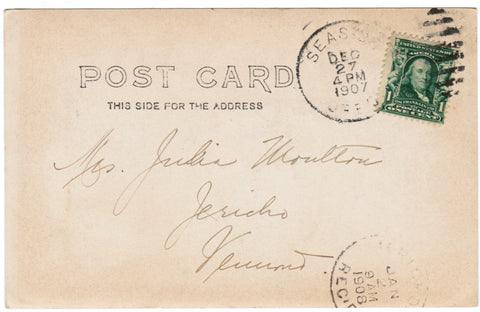 POST CARD
THIS SIDE FOR THE ADDRESS
DEC
27
4 PM
1907
ONE CENT
Mrs. Julia Moulton
Jericho
Vermont
JAN
9 AM
1908
REC'D